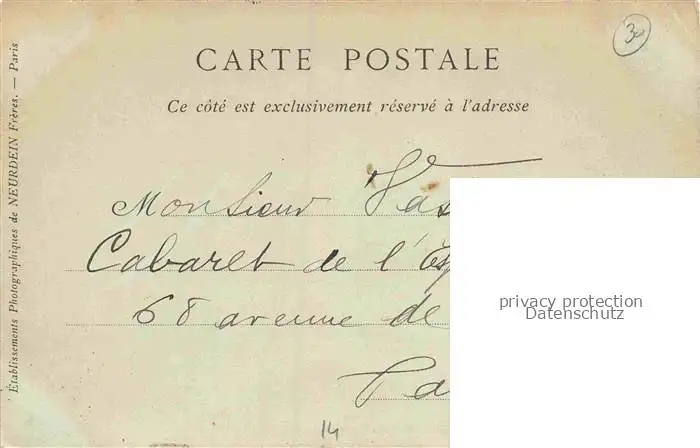 3
CARTE POSTALE
Ce côté est exclusivement réservé à l'adresse
Monsieur Vas
Cabaret de l'
68 avenue de
Pa
privacy protection
Datenschutz
14
Établissements Photographiques de NEURDEIN Frères. — Paris